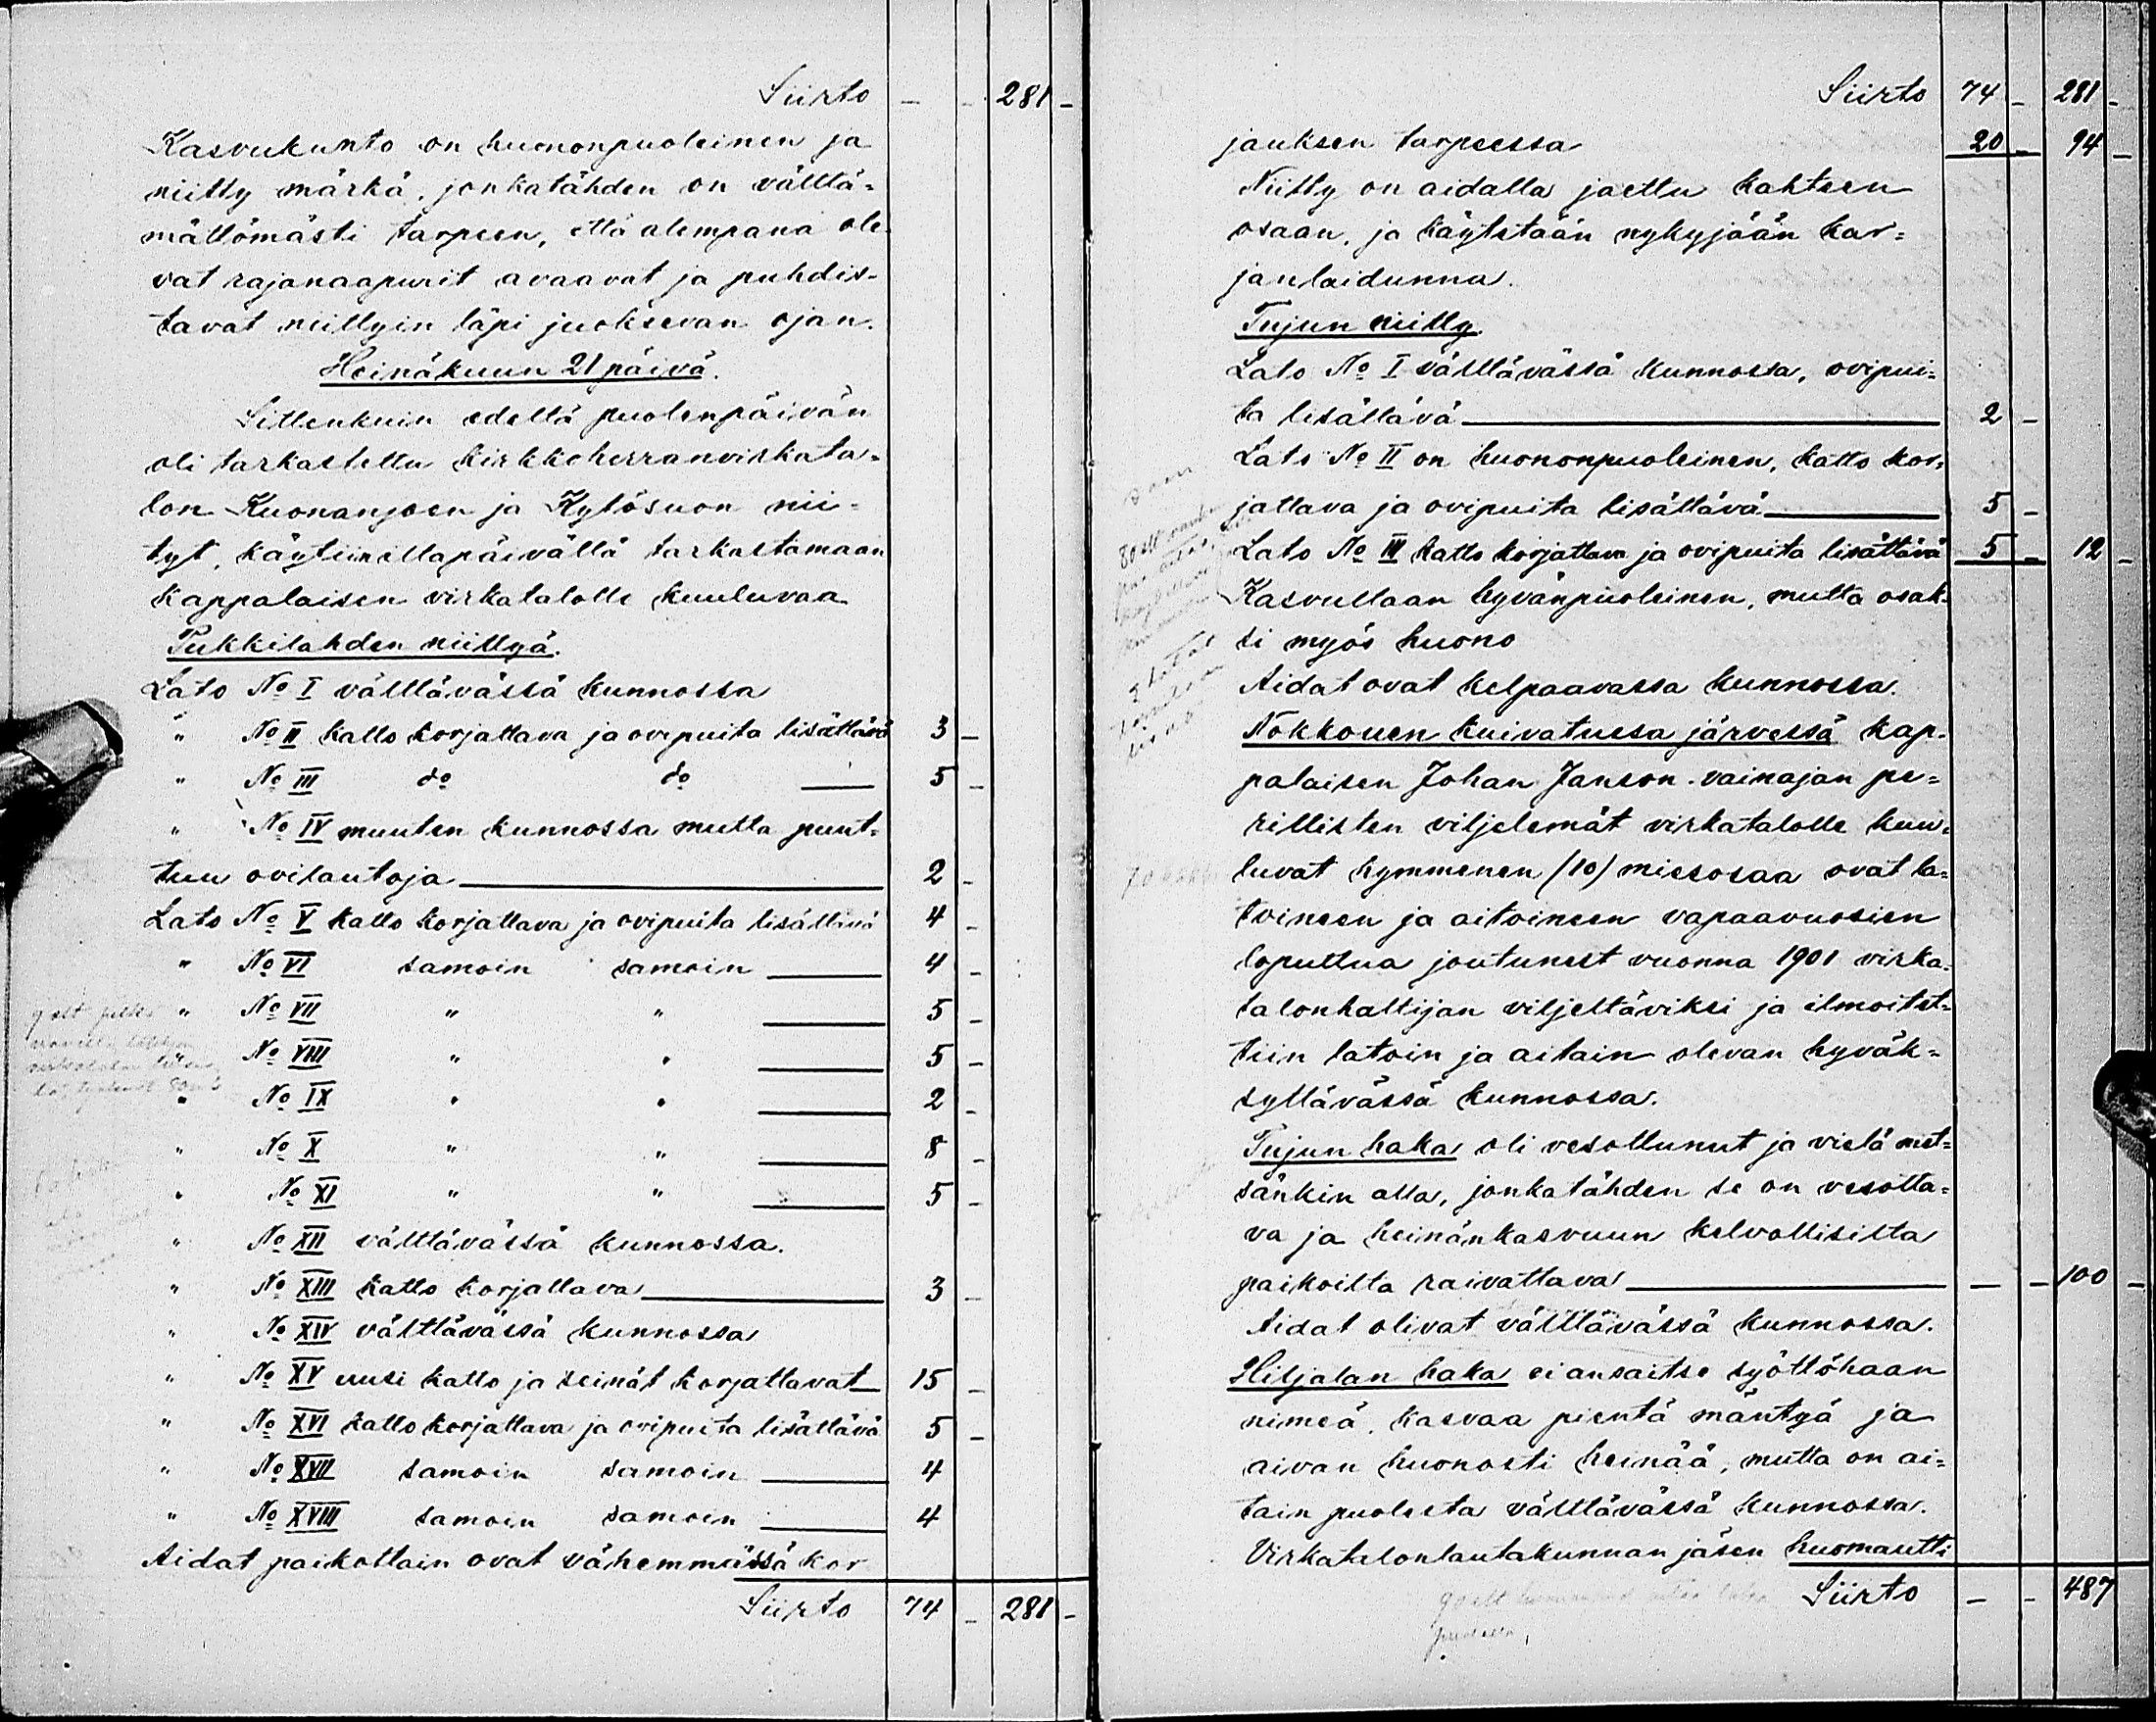 Siirto — - 281 -
Kasvukunto on huononpuoleinen ja
niitty märkä, jonkatähden on välttä=
mättömästi tarpeen, että alempana ole-
vat rajanaapurit avaavat ja puhdis-
tavat niittyin läpi juoksevan ojan.
Heinäkuun 21 päivä.
Sittenkuin edellä puolenpäivän
oli tarkastettu kirkkoherranvirkata=
lon Kuonanjoen ja Kylösuon nii=
tyt, käytiin iltapäivällä tarkastamaan
kappalaisen virkatalolle kuuluvaa
Tukkilahden niittyä.
Lato No I välttävässä kunnossa
" No II katto korjattava ja ovipuita lisättävä 3 -
" No III do do — 5 -
" No IV muuten kunnossa mutta puut=
tuu ovilautoja — 2 -
Lato No V katto korjattava ja ovipuita lisättävä 4 -
" No VI samoin samoin — 4 -
" No VII " " — 5 -
" No VIII " " — 5 -
" No IX " " — 2 -
" No X " " — 8 -
" No XI " " — 5 -
" No XII välttävässä kunnossa.
" No XIII katto korjattava — 3 -
" No XIV välttävässä kunnossa
" No XV uusi katto ja seinät korjattavat — 15 -
" No XVI katto korjattava ja ovipuita lisättävä 5 -
" No XVII samoin samoin — 4
" No XVIII samoin samoin — 4
Aidat paikottain ovat vähemmässä kor
Siirto 74 - 281 -
Siirto 74 - 281 -
jauksen tarpeessa 20 - 94 -
Niitty on aidalla jaettu kahteen
osaan, ja käytetään nykyjään kar=
janlaidunna.
Tujun niitty.
Lato No I välttävässä kunnossa, ovipui=
ta lisättävä — 2 -
Lato No II on huononpuoleinen, katto kor=
jattava ja ovipuita lisättävä — 5 -
Lato No III katto korjattava ja ovipuita lisättävä 5 - 12 -
Kasvultaan hyvänpuoleinen, mutta osak-
si myös huono
Aidat ovat kelpaavassa kunnossa.
Nokkouen kuivatussa järvessä kap-
palaisen Johan Janson-vainajan pe=
rillisten viljelemät virkatalolle kuu=
luvat kymmenen (10) miesosaa ovat la=
toineen ja aitoineen vapaavuosien
loputtua joutuneet vuonna 1901 virka=
talonhaltijan viljeltäviksi ja ilmoitet=
tiin latoin ja aitain olevan hyväk=
syttävässä kunnossa.
Tujun haka oli vesottunut ja vielä met=
sänkin alla, jonkatähden se on vesotta=
va ja heinänkasvuun kelvollisilta
paikoilta raivattava — — - 100 -
Aidat olivat välttävässä kunnossa.
Hiljalan haka ei ansaitse syöttöhaan
nimeä, kasvaa pientä mäntyä ja
aivan huonosti heinää, mutta on ai=
tain puolesta välttävässä kunnossa.
Virkatalonlautakunnan jäsen huomautti
Siirto — - 487